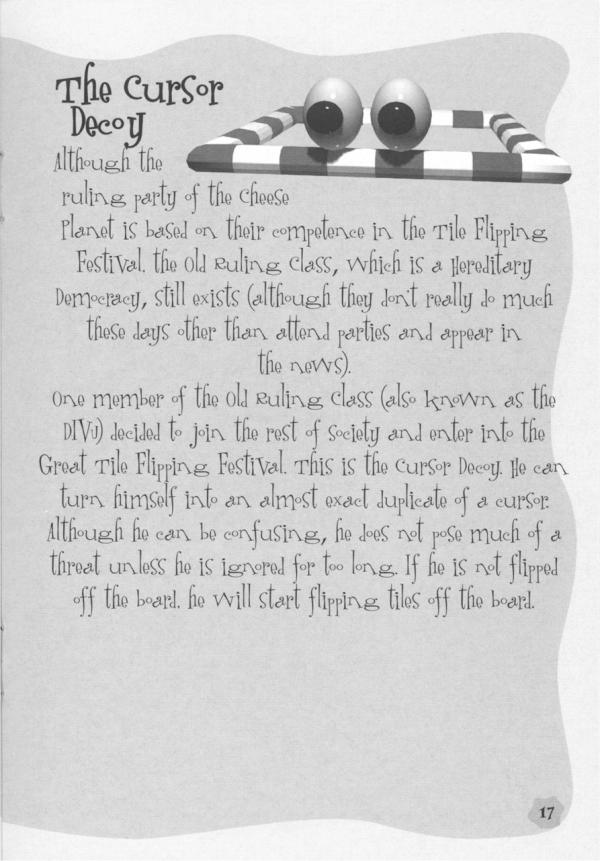 The Cursor
Decoy
Although the
ruling party of the Cheese
Planet is based on their competence in the Tile Flipping
Festival. the Old Ruling Class, which is a Hereditary
Democracy, still exists (although they don't really do much
these days other than attend parties and appear in
the news).
One member of the Old Ruling Class (also known as the
DIVJ) decided to join the rest of society and enter into the
Great Tile Flipping Festival. This is the Cursor Decoy. He can
turn himself into an almost exact duplicate of a cursor.
Although he can be confusing, he does not pose much of a
threat unless he is ignored for too long. If he is not flipped
off the board. he will start flipping tiles off the board.
17